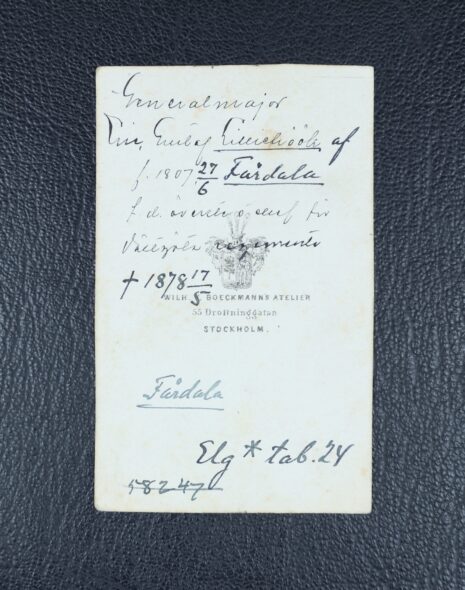 Generalmajor
Gustaf Lilliehöök af
f. 1807 27/6 Fårdala
f. d. överste o chef för
regemente
† 1878 17/5
WILH. BOECKMANNS ATELIER
55 Drottninggatan
STOCKHOLM.
Fårdala
Elg * tab. 24
58247